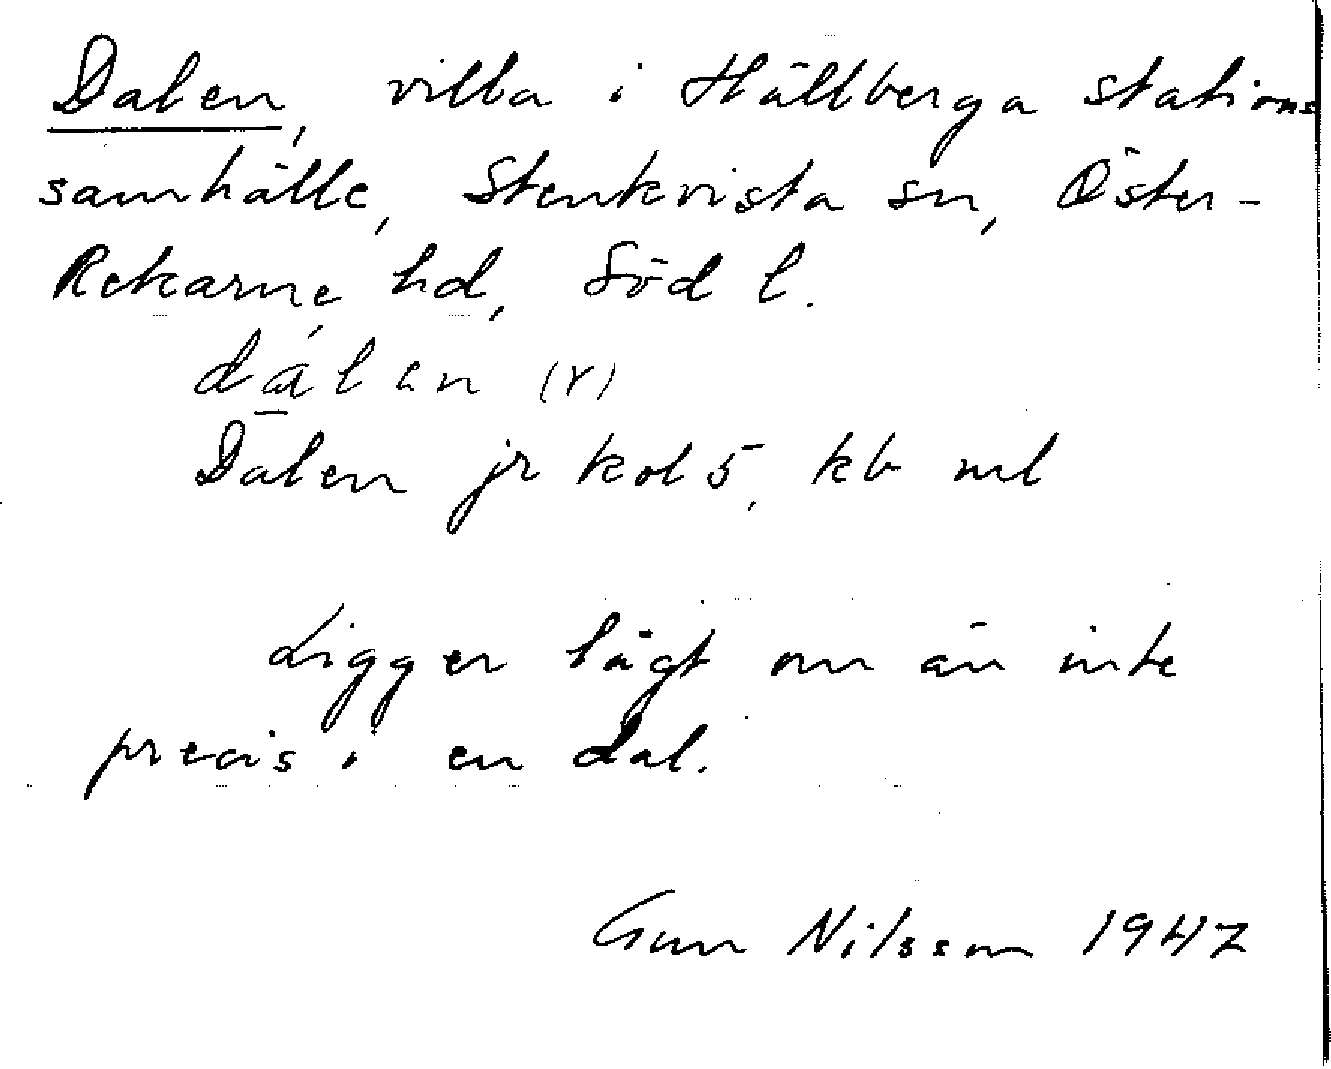 Dalen, villa i Hällberga stations
samhälle, Stenkvista sn, Öster-
Rekarne hd, Söd l.
dálen (r)
Dalen jr kol 5, kb ml
Ligger lågt om än inte
precis i en dal.
Gun Nilsson 1947